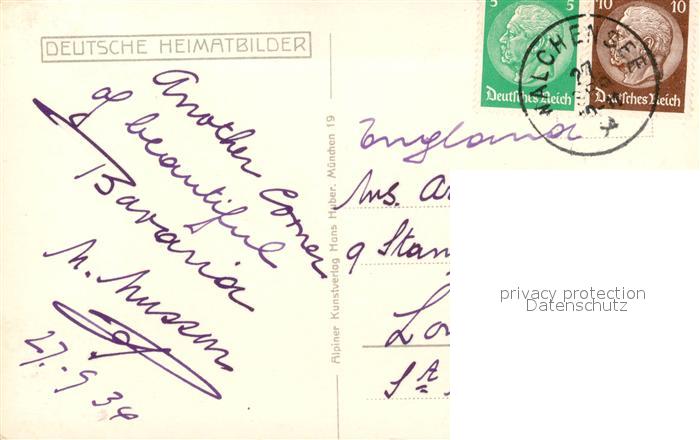 DEUTSCHE HEIMATBILDER
5 5
Deutsches Reich
10 10
Deutsches Reich
WALCHENSEE
27
Another Corner
of beautiful
Bavaria
M. Musson
27.-9 34
Alpiner Kunstverlag Hans Huber, München 19
England
Mrs.
9 Stan
Lo
privacy protection
Datenschutz